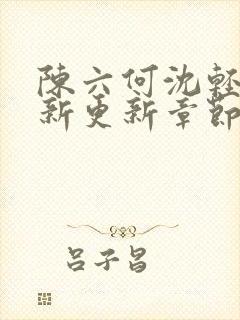 陳六何沈輕
新更新章節
吕子昌